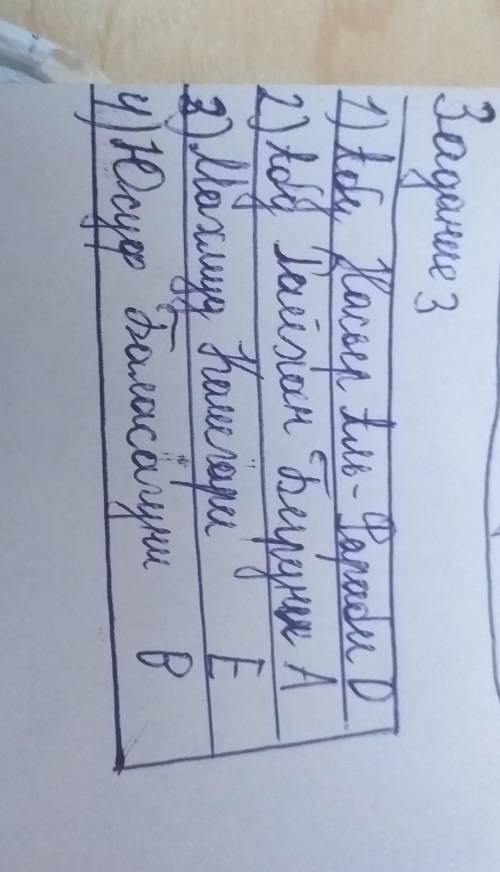 Задание 3
1) Абу Насыр Аль-Фараби D
2) Абу Райхан Беруни A
3) Махмуд Кашгари E
4) Юсуф Баласагуни B